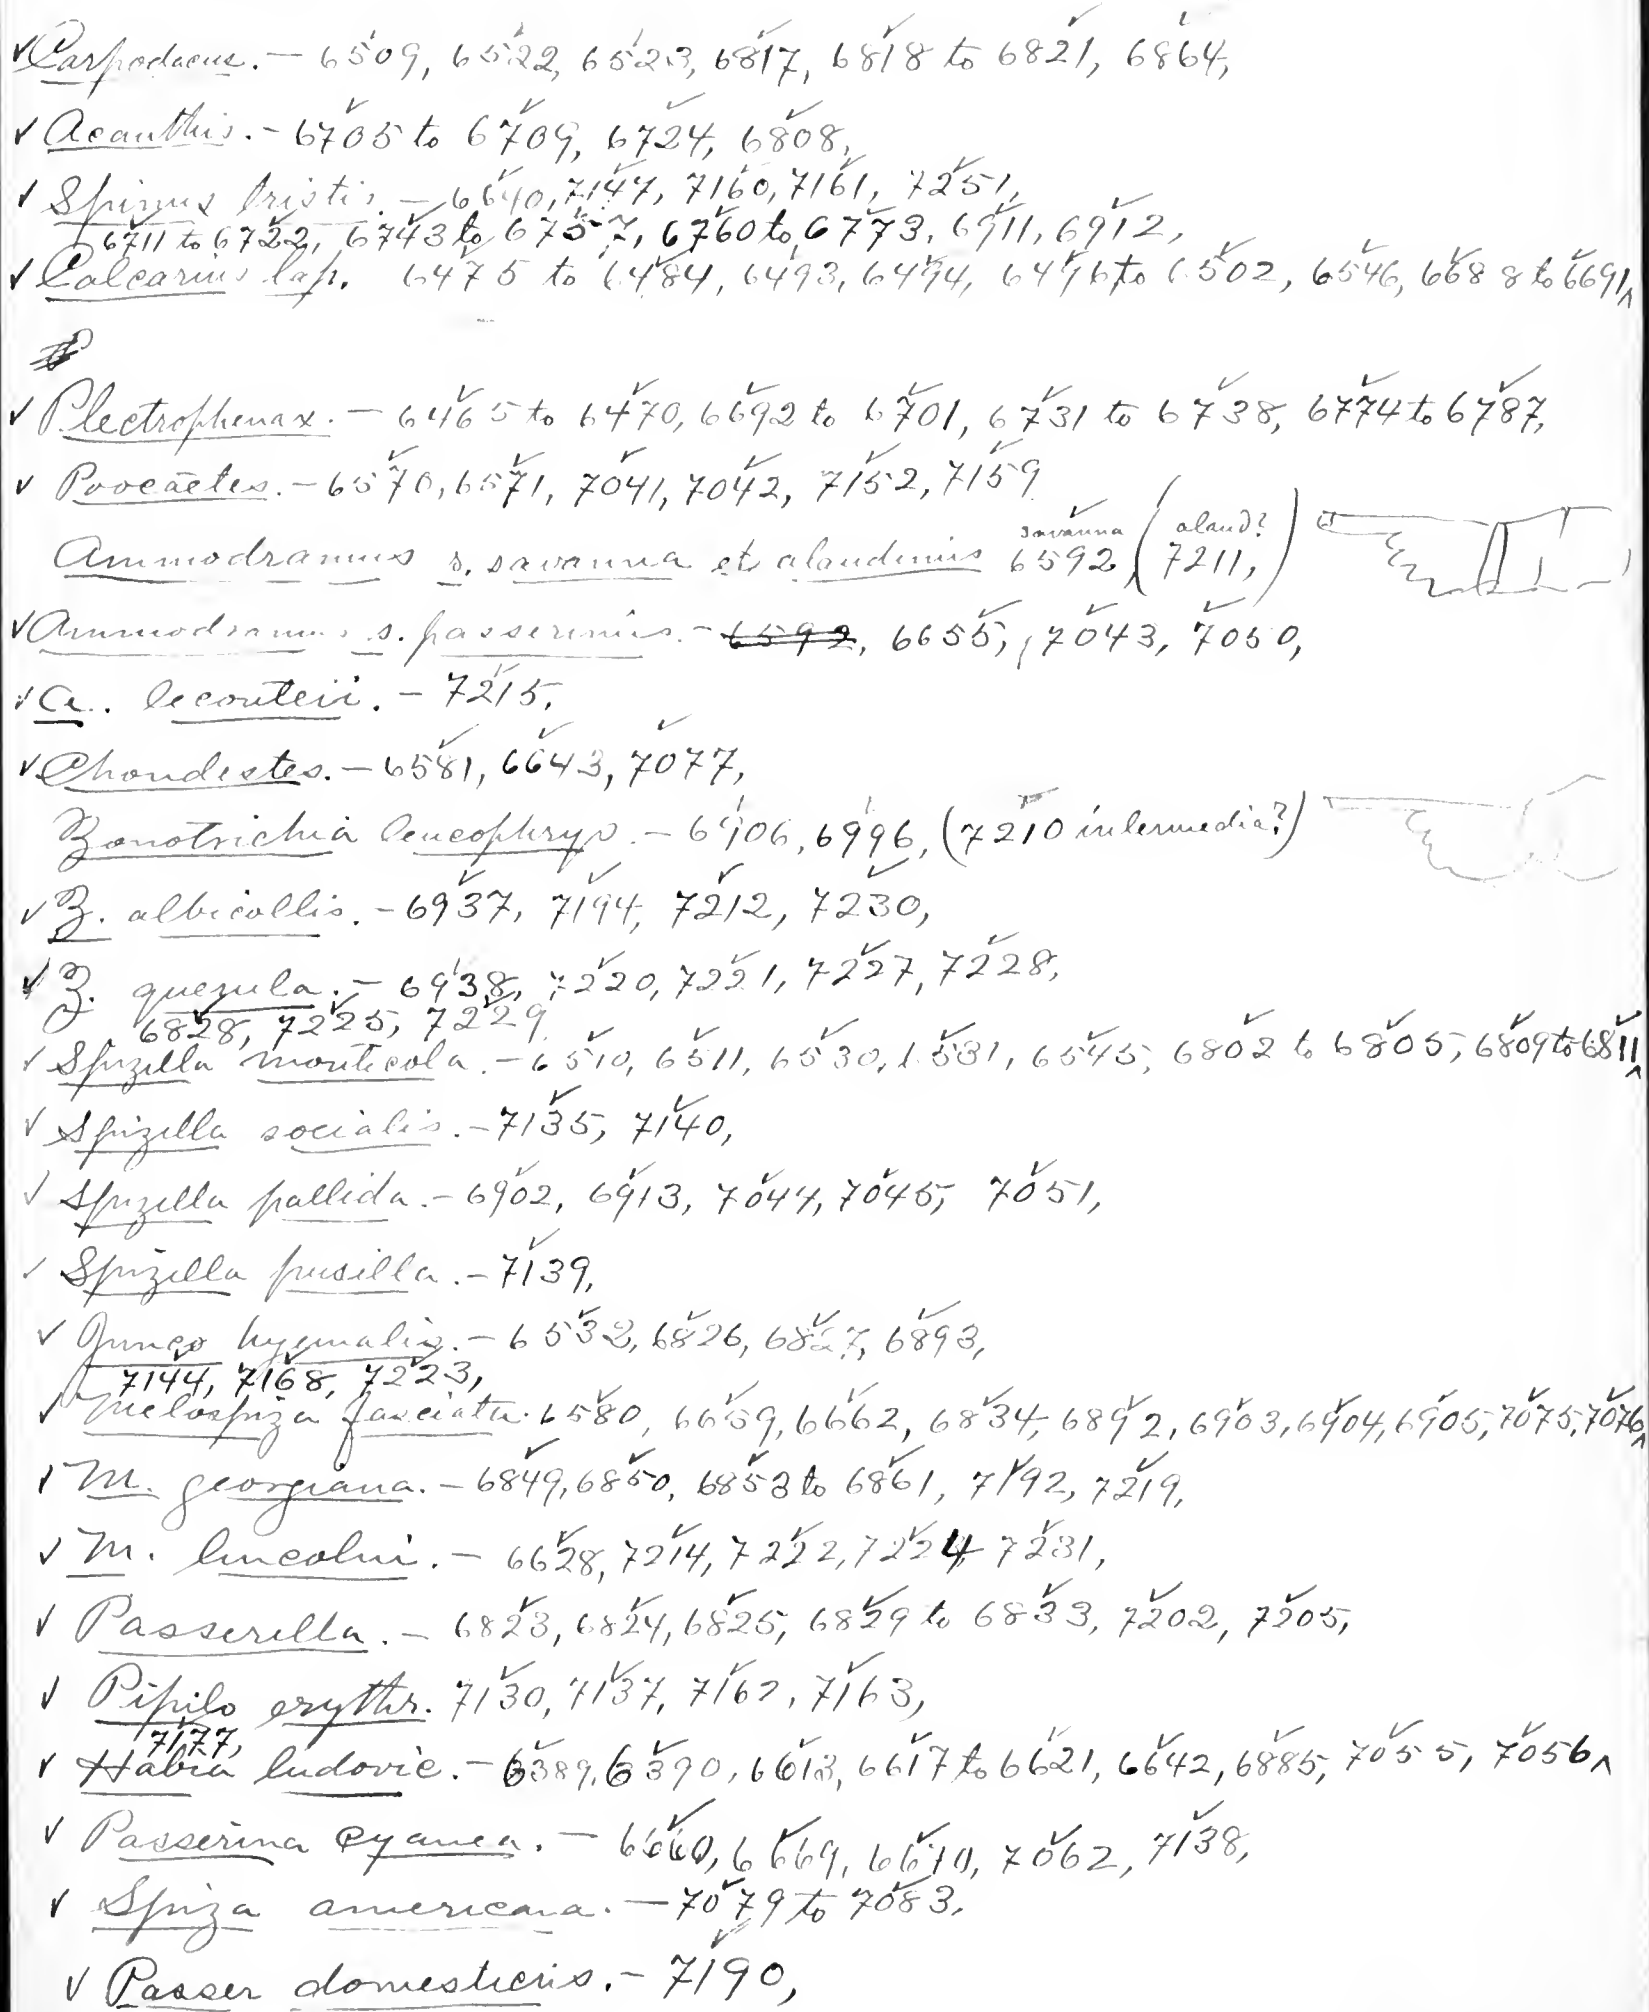 ✓ Carpodacus. — 6509, 6522, 6523, 6817, 6818 to 6821, 6864,
✓ Acanthis. - 6705 to 6709, 6724, 6808,
✓ Spinus tristis. — 6640, 7147, 7160, 7161, 7251,
6711 to 6722, 6743 to 6757, 6760 to 6773, 6911, 6912,
✓ Calcarius lap. 6475 to 6484, 6493, 6494, 6496 to 6502, 6546, 6688 to 6691,
✓ Plectrophenax. — 6465 to 6470, 6692 to 6701, 6731 to 6738, 6774 to 6787,
✓ Poocaetes. - 6570, 6571, 7041, 7042, 7152, 7159
savanna aland?
Ammodramus s. savanna et alaudinus 6592, (7211,)
✓ Ammodramus s. passerinus. - 6592, 6655, 7043, 7050,
✓ A. leconteii. - 7215,
✓ Chondestes. - 6581, 6643, 7077,
Zonotrichia leucophrys. - 6906, 6996, (7210 intermedia?)
✓ Z. albicollis. - 6937, 7194, 7212, 7230,
✓ Z. querula. - 6938, 7220, 7221, 7227, 7228,
6828, 7225, 7229
✓ Spizella monticola. - 6510, 6511, 6530, 6531, 6545, 6802 to 6805, 6809 to 6811,
✓ Spizella socialis. - 7135, 7140,
✓ Spizella pallida. - 6902, 6913, 7044, 7045, 7051,
✓ Spizella pusilla. - 7139,
✓ Junco hyemalis. - 6532, 6826, 6827, 6893,
7144, 7168, 7223,
✓ Melospiza fasciata. 6580, 6659, 6662, 6834, 6892, 6903, 6904, 6905, 7075, 7076,
✓ M. georgiana. - 6849, 6850, 6853 to 6861, 7192, 7219,
✓ M. lincolni. - 6628, 7214, 7222, 7224, 7231,
✓ Passerella. - 6823, 6824, 6825, 6829 to 6833, 7202, 7205,
✓ Pipilo erythr. 7130, 7137, 7162, 7163,
7177,
✓ Habia ludovic. - 6389, 6390, 6613, 6617 to 6621, 6642, 6885, 7055, 7056
✓ Passerina cyanea. - 6660, 6669, 6670, 7062, 7138,
✓ Spiza americana. - 7079 to 7083,
✓ Passer domesticus. - 7190,